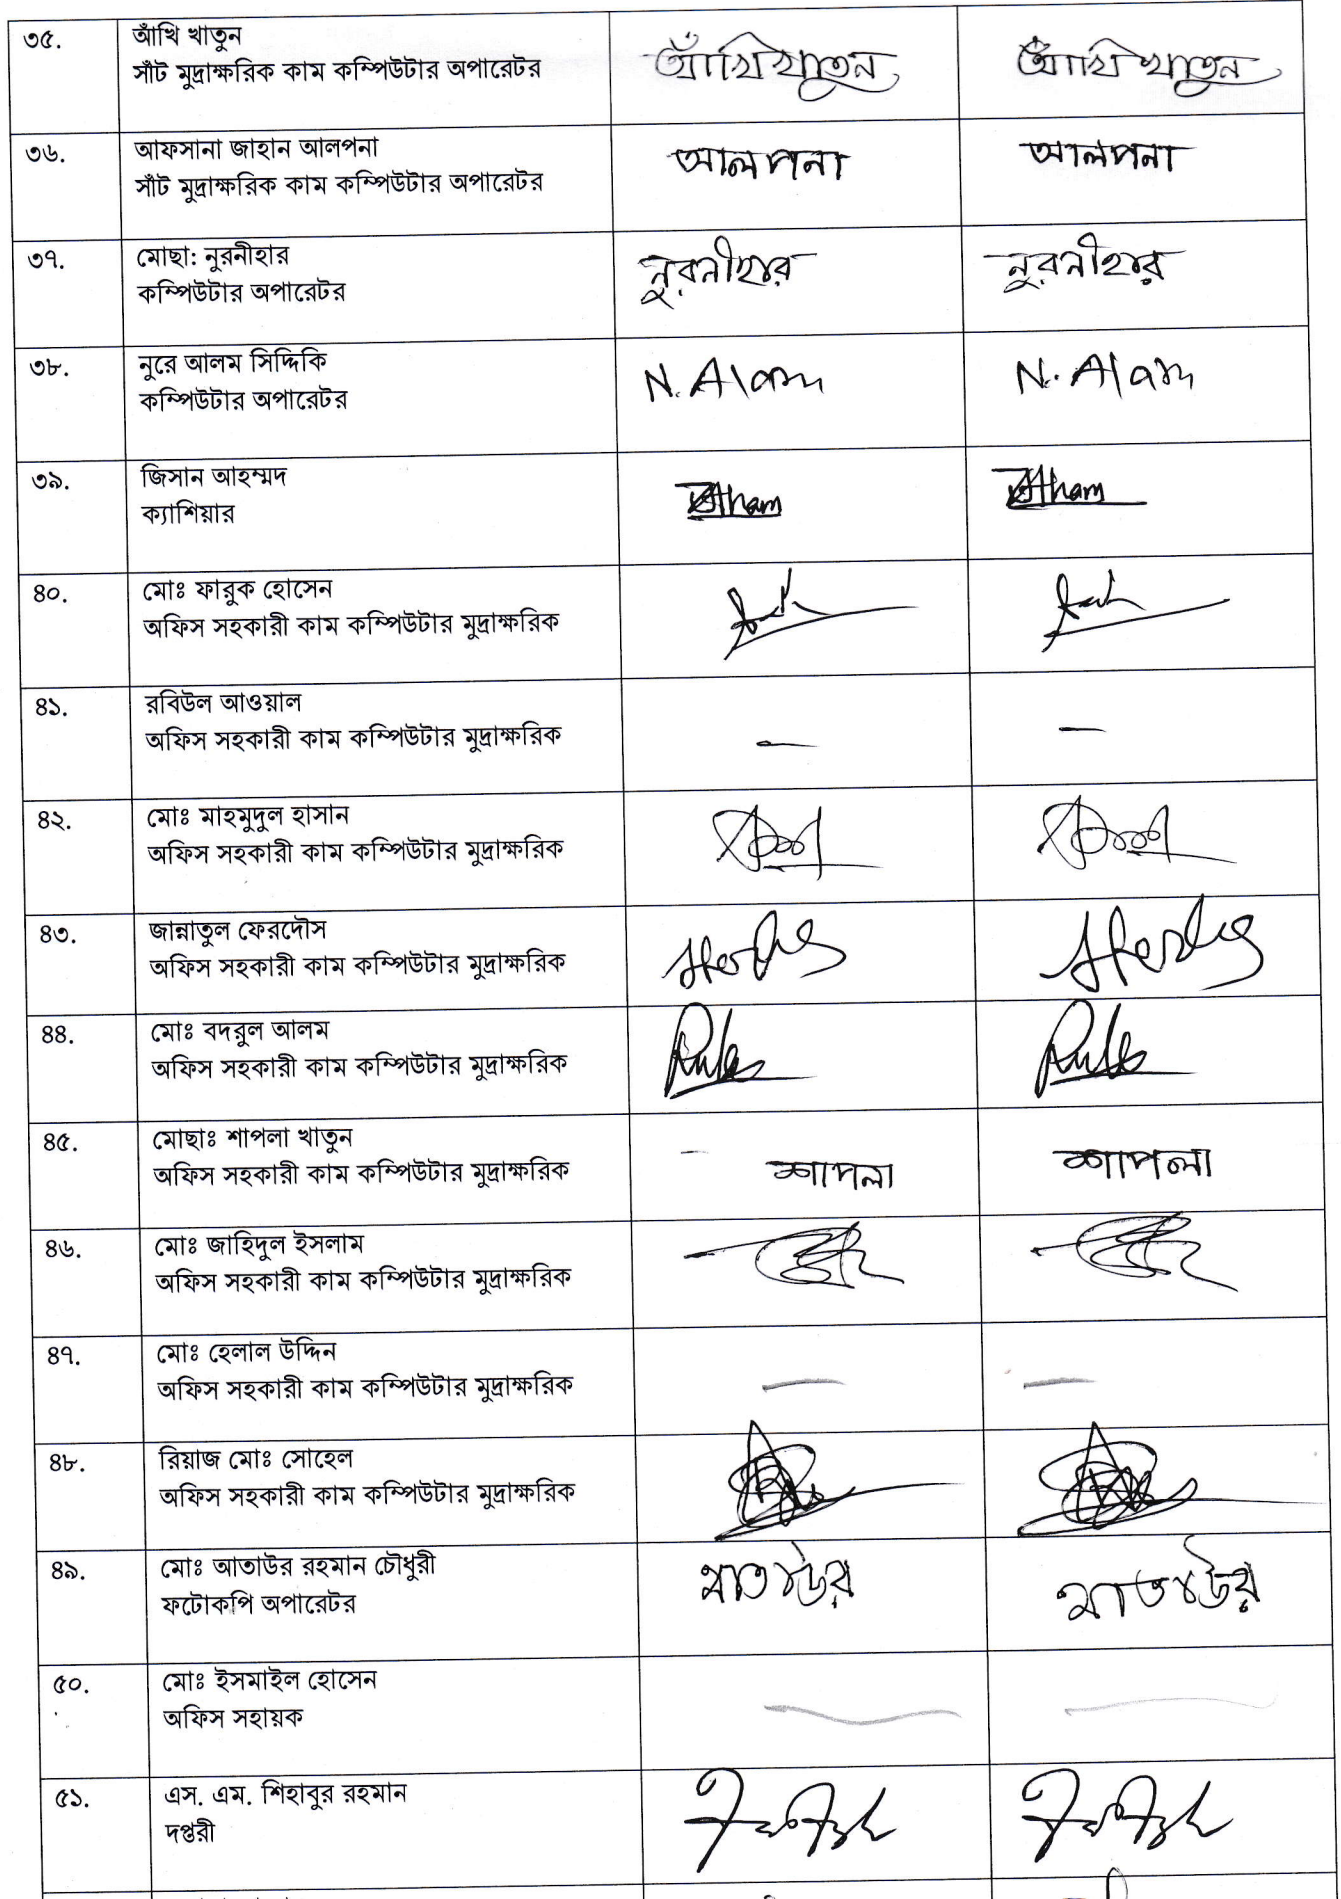 ৩৫. আঁখি খাতুন আঁখি খাতুন আঁখি খাতুন
সাঁট মুদ্রাক্ষরিক কাম কম্পিউটার অপারেটর
৩৬. আফসানা জাহান আলপনা আলপনা আলপনা
সাঁট মুদ্রাক্ষরিক কাম কম্পিউটার অপারেটর
৩৭. মোছা: নুরনীহার নুরনীহার নুরনীহার
কম্পিউটার অপারেটর
৩৮. নুরে আলম সিদ্দিকি N. Alam N. Alam
কম্পিউটার অপারেটর
৩৯. জিসান আহম্মদ
ক্যাশিয়ার
৪০. মোঃ ফারুক হোসেন
অফিস সহকারী কাম কম্পিউটার মুদ্রাক্ষরিক
৪১. রবিউল আওয়াল
অফিস সহকারী কাম কম্পিউটার মুদ্রাক্ষরিক
৪২. মোঃ মাহমুদুল হাসান
অফিস সহকারী কাম কম্পিউটার মুদ্রাক্ষরিক
৪৩. জান্নাতুল ফেরদৌস
অফিস সহকারী কাম কম্পিউটার মুদ্রাক্ষরিক
৪৪. মোঃ বদরুল আলম
অফিস সহকারী কাম কম্পিউটার মুদ্রাক্ষরিক
৪৫. মোছাঃ শাপলা খাতুন শাপলা শাপলা
অফিস সহকারী কাম কম্পিউটার মুদ্রাক্ষরিক
৪৬. মোঃ জাহিদুল ইসলাম
অফিস সহকারী কাম কম্পিউটার মুদ্রাক্ষরিক
৪৭. মোঃ হেলাল উদ্দিন
অফিস সহকারী কাম কম্পিউটার মুদ্রাক্ষরিক
৪৮. রিয়াজ মোঃ সোহেল
অফিস সহকারী কাম কম্পিউটার মুদ্রাক্ষরিক
৪৯. মোঃ আতাউর রহমান চৌধুরী আতাউর আতাউর
ফটোকপি অপারেটর
৫০. মোঃ ইসমাইল হোসেন
অফিস সহায়ক
৫১. এস. এম. শিহাবুর রহমান
দপ্তরী